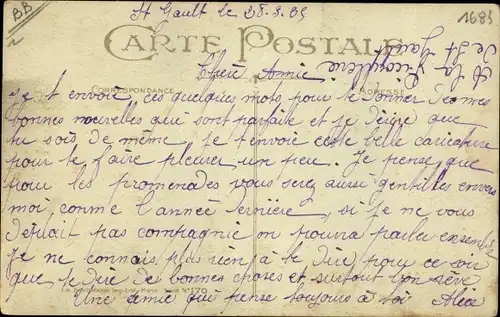 BB
1685
St Gault le 28.3.35
CARTE POSTALE
Chère Annie
A la
de St Gault
CORRESPONDANCE
ADRESSE
Je t envoie ces quelques mots pour te donner de mes
bonnes nouvelles qui sont parfaite et je désire que
tu sois de même. je t'envoie cette belle caricature
pour te faire pleurer un peu. Je pense que
pour les promenades vous serez aussi gentilles envers
moi, comme l'année dernière, si je ne vous
déplait pas compagnie on pourra parler ensemble
Je ne connais plus rien à te dire pour ce soir
que te dire de bonnes choses et surtout bon rêve
Une amie qui pense toujours à toi Alice
N° 170